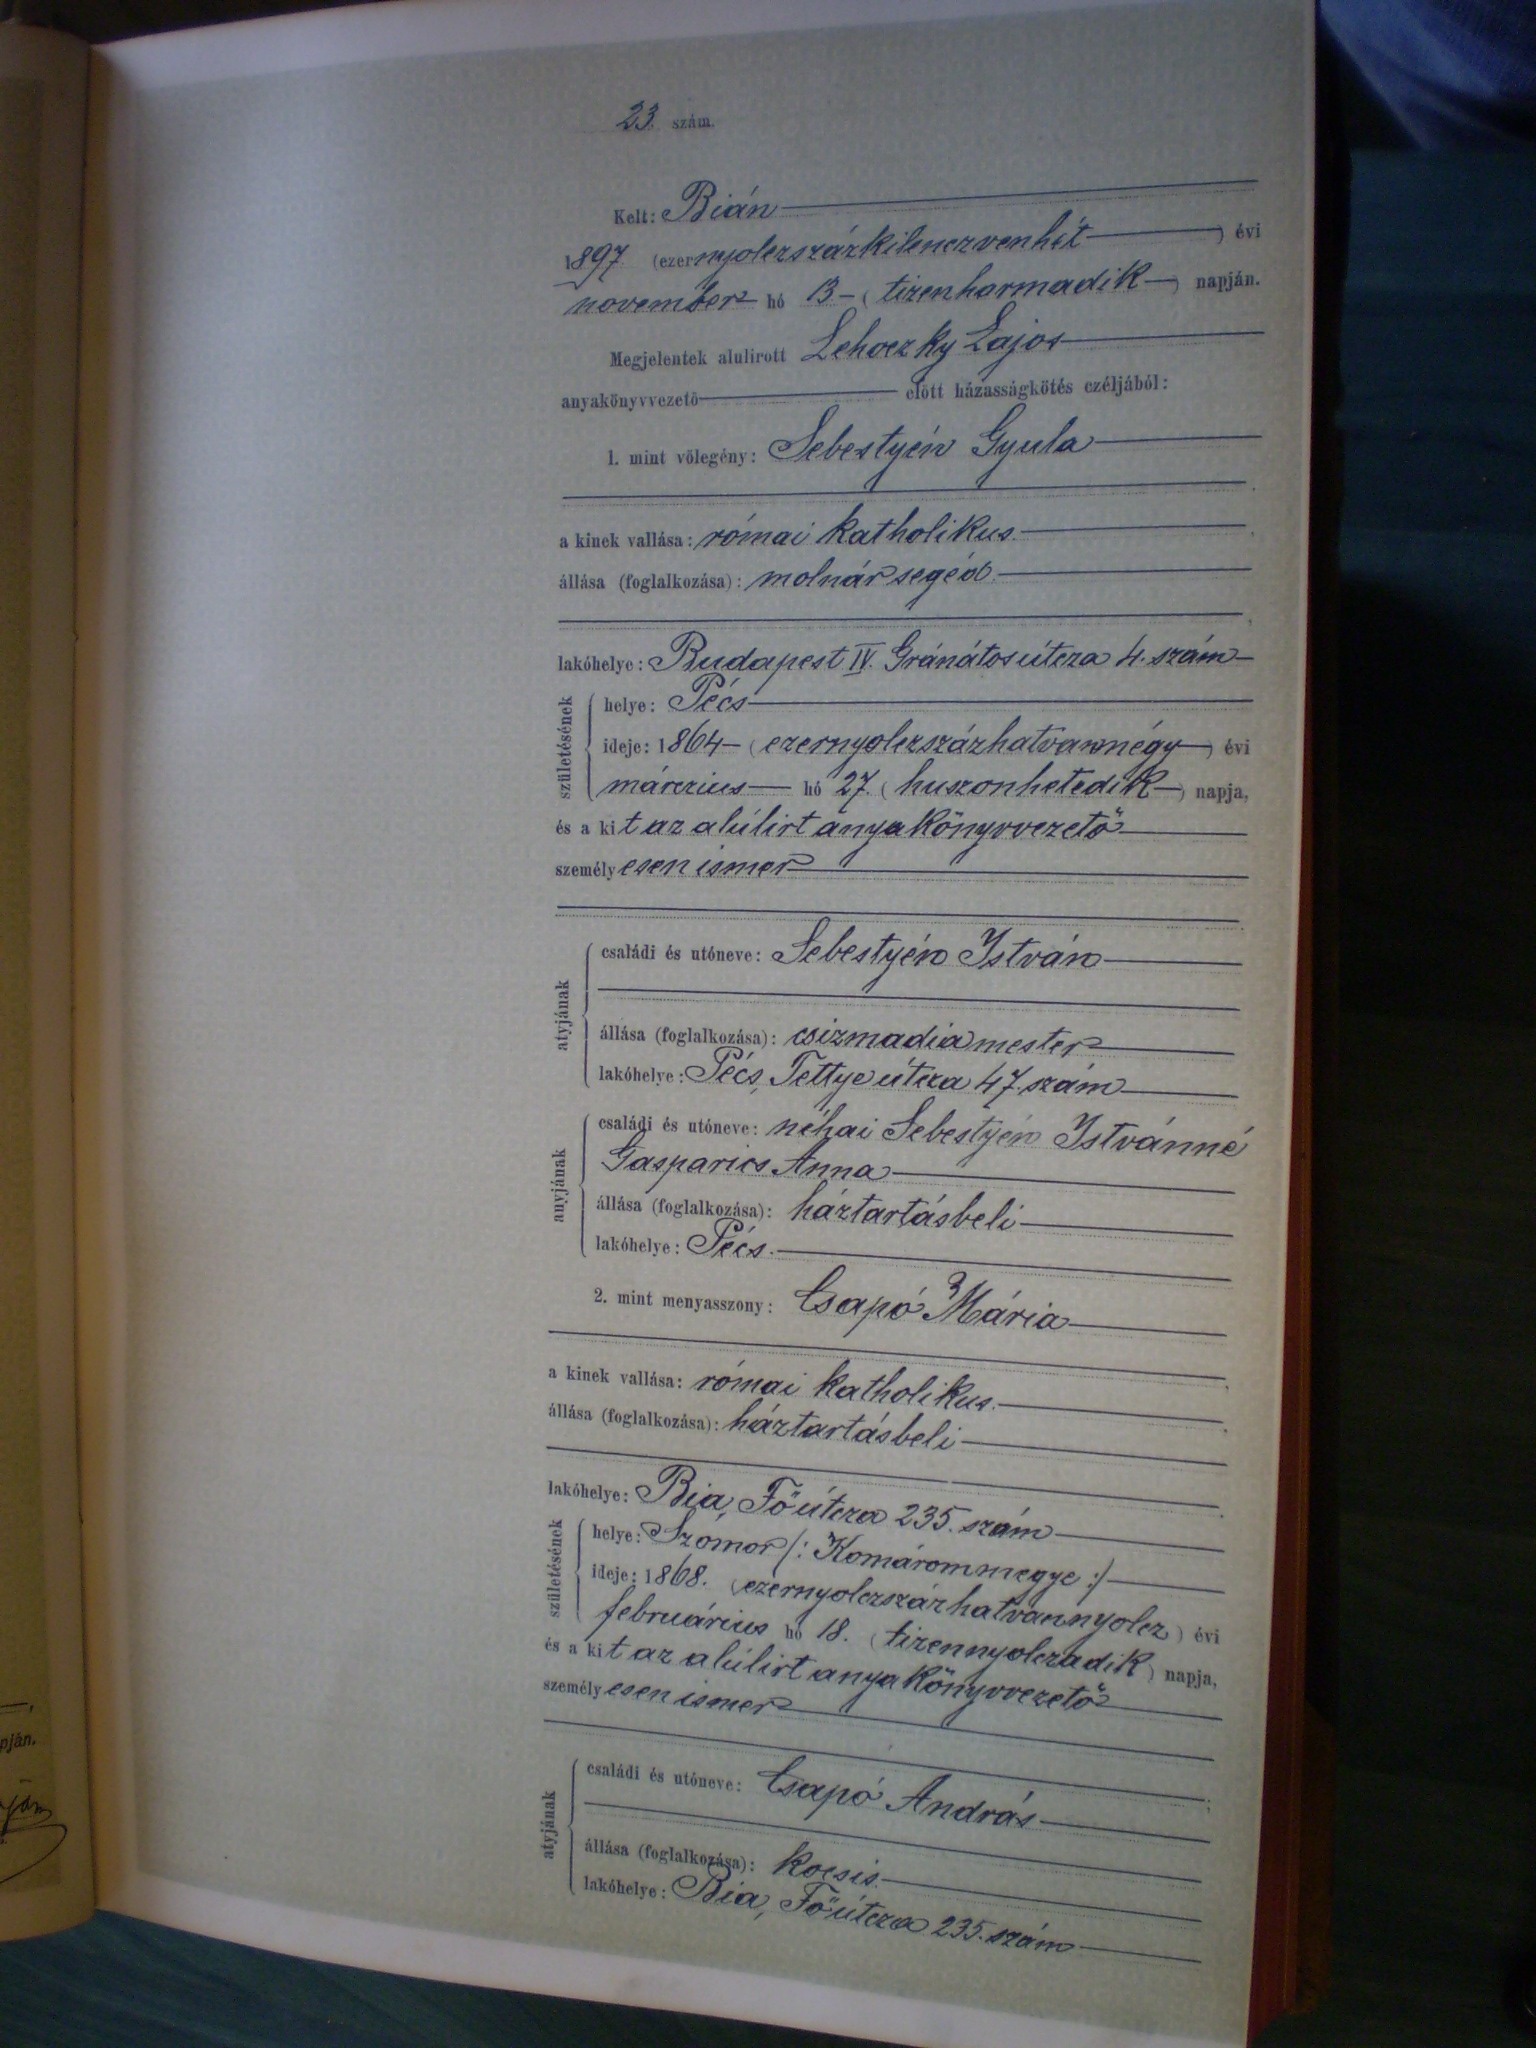 23. szám.
Kelt: Bián
1897 (ezernyolczszázkilenczvenhét) évi
november hó 13 (tizenharmadik) napján.
Megjelentek alulirott Lehoczky Lajos
anyakönyvvezető előtt házasságkötés czéljából:
1. mint vőlegény: Sebestyén Gyula
a kinek vallása: római katholikus
állása (foglalkozása): molnár segéd
lakóhelye: Budapest IV. Gránátos útcza 4. szám
születésének
helye: Pécs
ideje: 1864 (ezernyolczszázhatvannégy) évi
márczius hó 27. (huszonhetedik) napja,
és a kit az alúlirt anyakönyvvezető
személyesen ismer
atyjának
családi és utóneve: Sebestyén István
állása (foglalkozása): csizmadia mester
lakóhelye: Pécs, Tettye útcza 47. szám
anyjának
családi és utóneve: néhai Sebestyén Istvánné
Gasparics Anna
állása (foglalkozása): háztartásbeli
lakóhelye: Pécs.
2. mint menyasszony: Csapó Mária
a kinek vallása: római katholikus.
állása (foglalkozása): háztartásbeli
lakóhelye: Bia, Főútcza 235. szám
születésének
helye: Szomor /: Komárommegye :/
ideje: 1868. (ezernyolczszázhatvannyolcz) évi
februárius hó 18. (tizennyolczadik) napja,
és a kit az alúlirt anyakönyvvezető
személyesen ismer
atyjának
családi és utóneve: Csapó András
állása (foglalkozása): kocsis
lakóhelye: Bia, Főútcza 235. szám
pján.